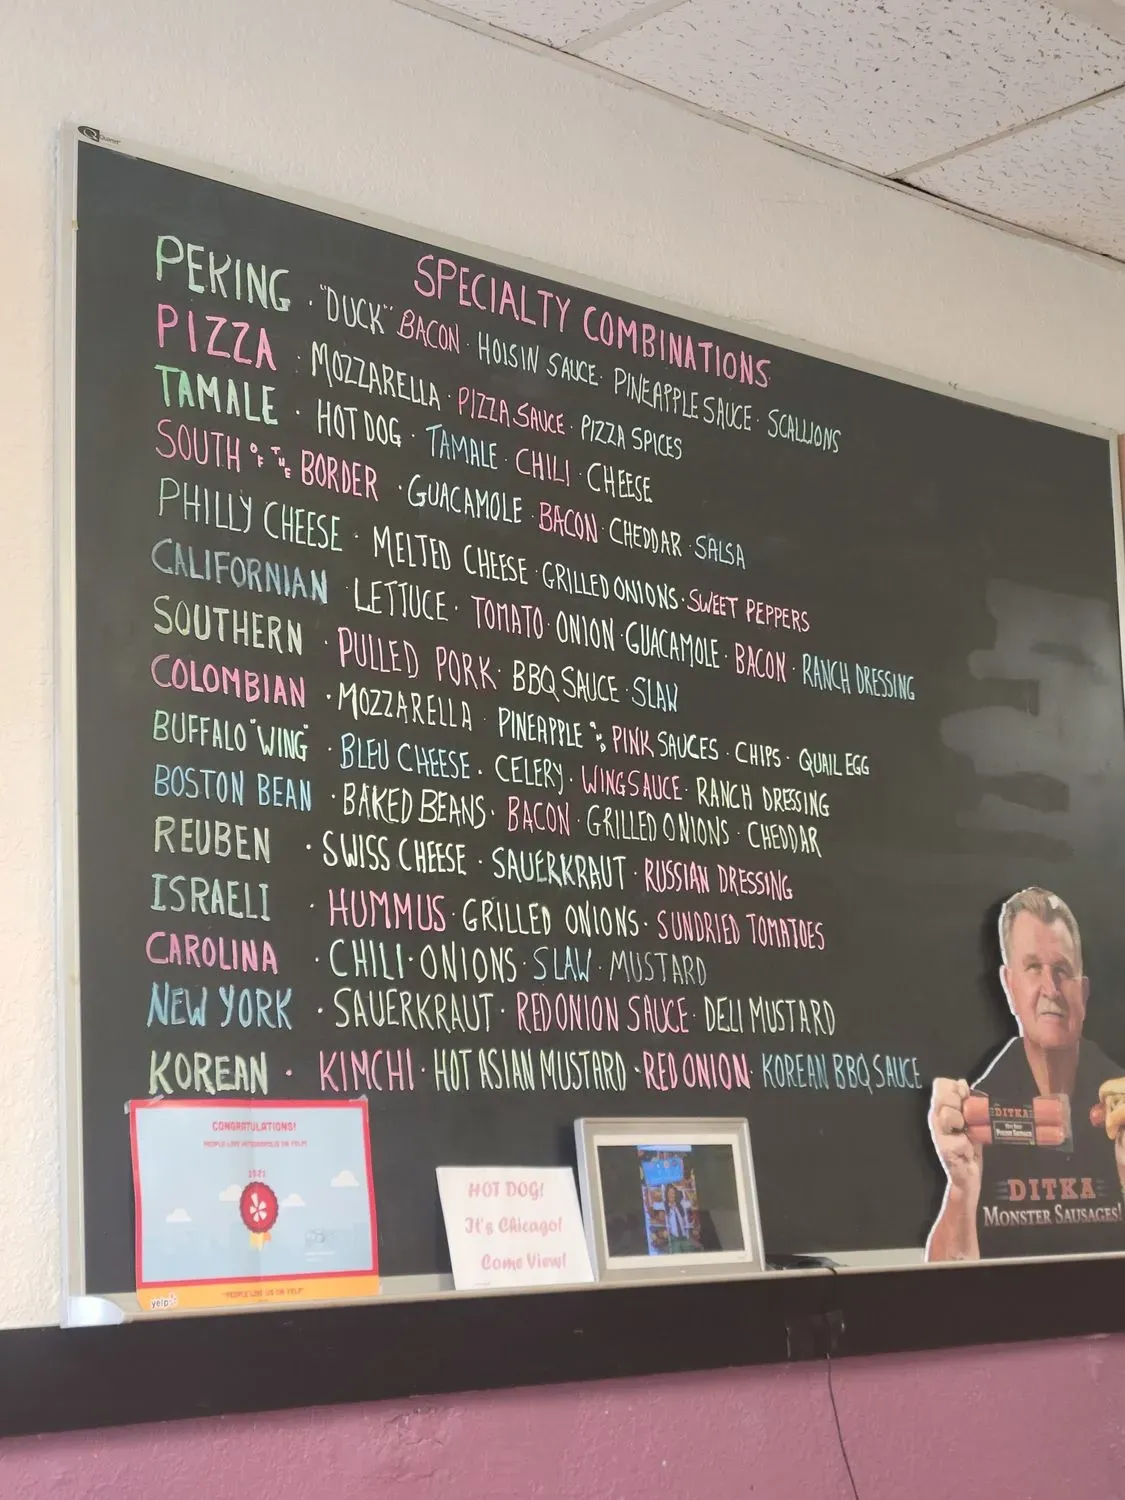 Quartet
SPECIALTY COMBINATIONS
PEKING · "DUCK" BACON · HOISIN SAUCE · PINEAPPLE SAUCE · SCALLIONS
PIZZA · MOZZARELLA · PIZZA SAUCE · PIZZA SPICES
TAMALE · HOT DOG · TAMALE · CHILI · CHEESE
SOUTH OF THE BORDER · GUACAMOLE · BACON · CHEDDAR · SALSA
PHILLY CHEESE · MELTED CHEESE · GRILLED ONIONS · SWEET PEPPERS
CALIFORNIAN · LETTUCE · TOMATO · ONION · GUACAMOLE · BACON · RANCH DRESSING
SOUTHERN · PULLED PORK · BBQ SAUCE · SLAW
COLOMBIAN · MOZZARELLA · PINEAPPLE & PINK SAUCES · CHIPS · QUAIL EGG
BUFFALO "WING" · BLEU CHEESE · CELERY · WING SAUCE · RANCH DRESSING
BOSTON BEAN · BAKED BEANS · BACON · GRILLED ONIONS · CHEDDAR
REUBEN · SWISS CHEESE · SAUERKRAUT · RUSSIAN DRESSING
ISRAELI · HUMMUS · GRILLED ONIONS · SUNDRIED TOMATOES
CAROLINA · CHILI · ONIONS · SLAW · MUSTARD
NEW YORK · SAUERKRAUT · RED ONION SAUCE · DELI MUSTARD
KOREAN · KIMCHI · HOT ASIAN MUSTARD · RED ONION · KOREAN BBQ SAUCE
CONGRATULATIONS!
PEOPLE LOVE ON YELP!
2021
yelp
"PEOPLE LOVE US ON YELP"
HOT DOG!
It's Chicago!
Come View!
DITKA
DITKA
MONSTER SAUSAGES!